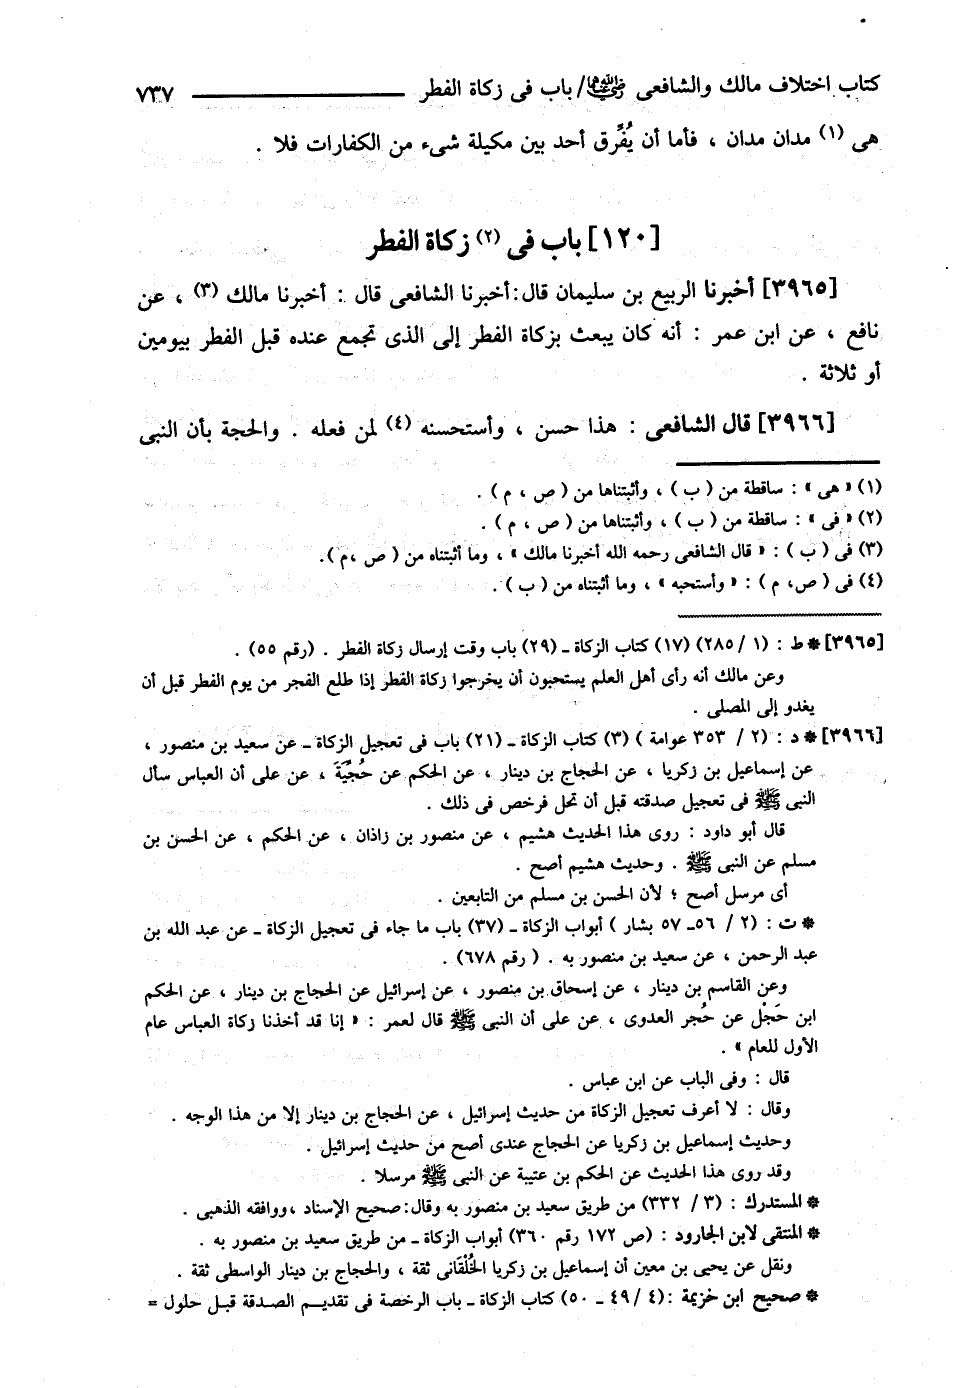 كتاب اختلاف مالك والشافعى رضي الله عنهما / باب فى زكاة الفطر ــــــــ ٧٣٧
هى (١) مدان مدان ، فأما أن يُفَرِّق أحد بين مكيلة شىء من الكفارات فلا .
[١٢٠] باب فى (٢) زكاة الفطر
[٣٩٦٥] أخبرنا الربيع بن سليمان قال : أخبرنا الشافعى قال : أخبرنا مالك (٣) ، عن
نافع ، عن ابن عمر : أنه كان يبعث بزكاة الفطر إلى الذى تجمع عنده قبل الفطر بيومين
أو ثلاثة .
[٣٩٦٦] قال الشافعى : هذا حسن ، وأستحسنه (٤) لمن فعله . والحجة بأن النبى
(١) « هى » : ساقطة من ( ب ) ، وأثبتناها من ( ص ، م ) .
(٢) « فى » : ساقطة من ( ب ) ، وأثبتناها من ( ص ، م ) .
(٣) فى ( ب ) : « قال الشافعى رحمه الله أخبرنا مالك » ، وما أثبتناه من ( ص ،م ).
(٤) فى ( ص، م ) : « وأستحبه » ، وما أثبتناه من ( ب ) .
[٣٩٦٥] * ط : (١ / ٢٨٥) (١٧) كتاب الزكاة ـ (٢٩) باب وقت إرسال زكاة الفطر . (رقم ٥٥) .
وعن مالك أنه رأى أهل العلم يستحبون أن يخرجوا زكاة الفطر إذا طلع الفجر من يوم الفطر قبل أن
يغدو إلى المصلى .
[٣٩٦٦] * د : (٢ / ٣٥٣ عوامة ) (٣) كتاب الزكاة ـ (٢١) باب فى تعجيل الزكاة ـ عن سعيد بن منصور ،
عن إسماعيل بن زكريا ، عن الحجاج بن دينار ، عن الحكم عن حُجَيَّة ، عن على أن العباس سأل
النبى ﷺ فى تعجيل صدقته قبل أن تحل فرخص فى ذلك .
قال أبو داود : روى هذا الحديث هشيم ، عن منصور بن زاذان ، عن الحكم ، عن الحسن بن
مسلم عن النبى ﷺ . وحديث هشيم أصح .
أى مرسل أصح ؛ لأن الحسن بن مسلم من التابعين .
* ت : (٢ / ٥٦ـ ٥٧ بشار ) أبواب الزكاة ـ (٣٧) باب ما جاء فى تعجيل الزكاة ـ عن عبد الله بن
عبد الرحمن ، عن سعيد بن منصور به . ( رقم ٦٧٨) .
وعن القاسم بن دينار ، عن إسحاق بن منصور ، عن إسرائيل عن الحجاج بن دينار ، عن الحكم
ابن حَجْل عن حُجر العدوى ، عن على أن النبى ﷺ قال لعمر : « إنا قد أخذنا زكاة العباس عام
الأول للعام » .
قال : وفى الباب عن ابن عباس .
وقال : لا أعرف تعجيل الزكاة من حديث إسرائيل ، عن الحجاج بن دينار إلا من هذا الوجه .
وحديث إسماعيل بن زكريا عن الحجاج عندى أصح من حديث إسرائيل .
وقد روى هذا الحديث عن الحكم بن عتيبة عن النبى ﷺ مرسلا .
* المستدرك : (٣ / ٣٣٢) من طريق سعيد بن منصور به وقال: صحيح الإسناد ،ووافقه الذهبى .
* المنتقى لابن الجارود : (ص ١٧٢ رقم ٣٦٠) أبواب الزكاة ـ من طريق سعيد بن منصور به .
ونقل عن يحيى بن معين أن إسماعيل بن زكريا الخُلْقَانى ثقة ، والحجاج بن دينار الواسطى ثقة .
* صحيح ابن خزيمة : (٤ / ٤٩ ـ ٥٠) كتاب الزكاة ـ باب الرخصة فى تقديم الصدقة قبل حلول =